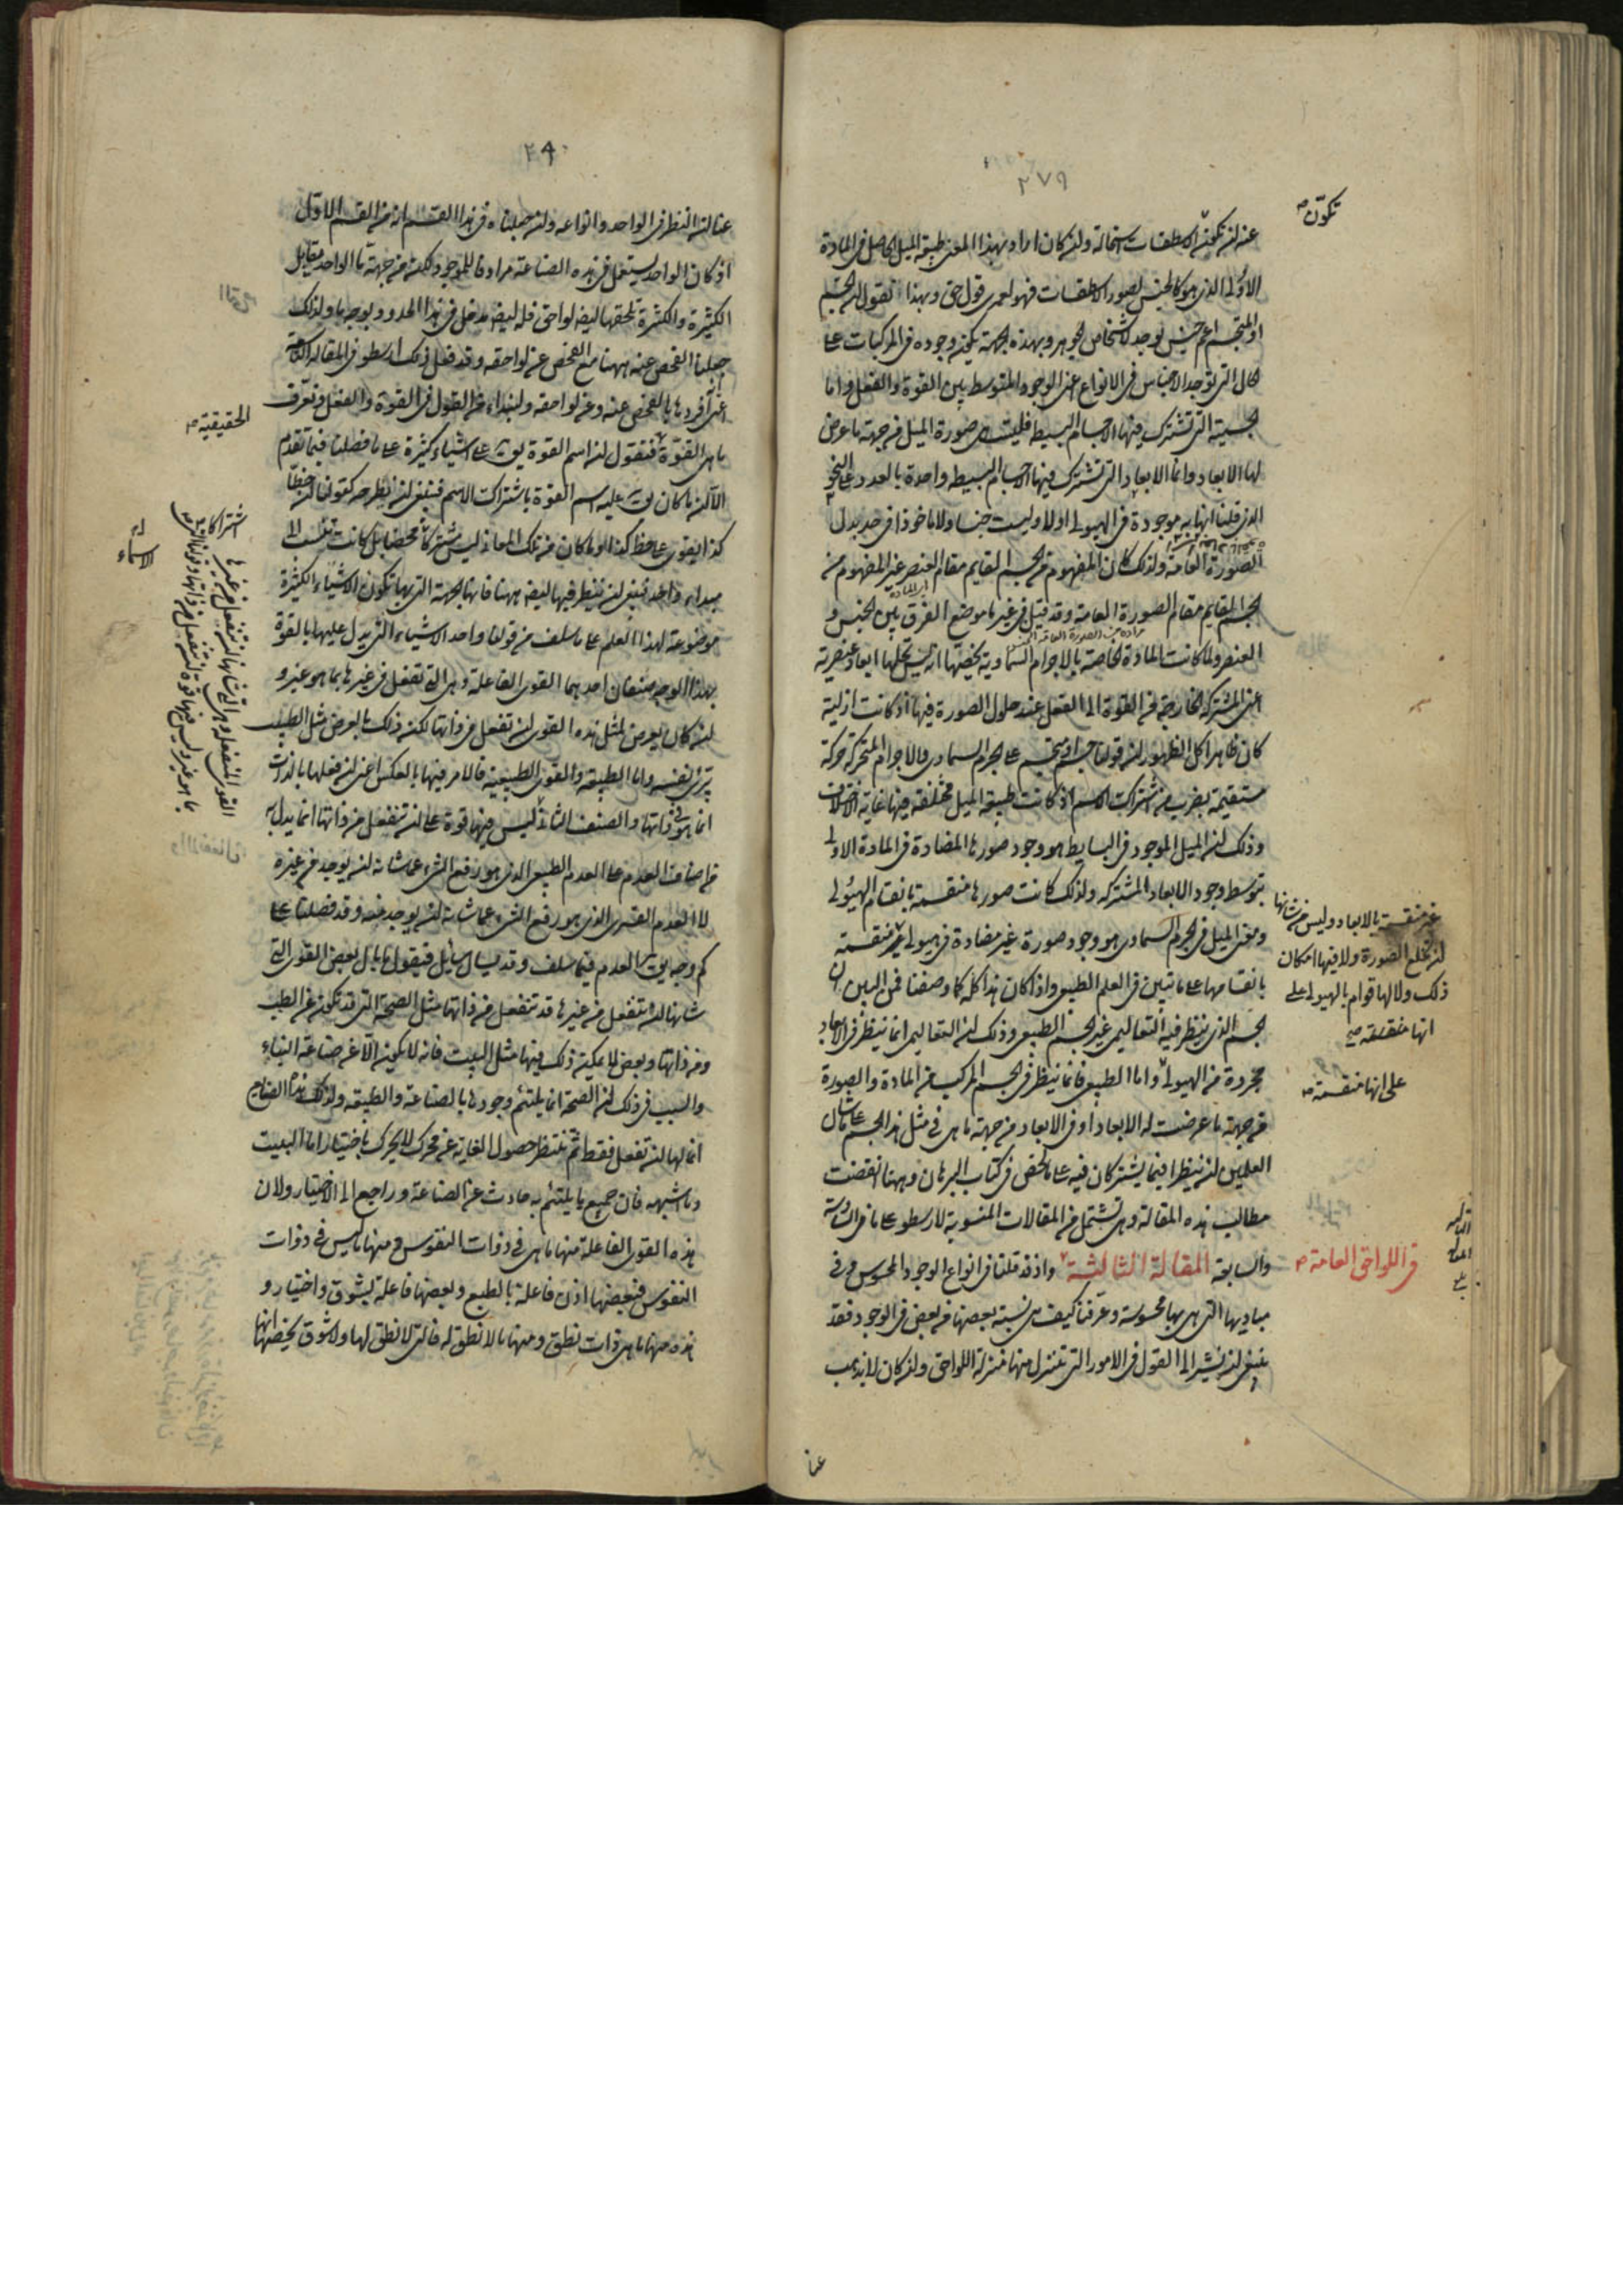 ٢٧٩
تكوّن صح
عنه لن تكون الاسطقسات استحالة ولن كان اراد بهذا المعنى طبيعة الميل الحاصل فى المادة
الاولى الذى هو كالجنس لصور الاسطقسات فهو لعمرى قول حق وبهذا نقول لن الجسم
او المتجسم اعم جنس يوجد لاشخاص الجوهر وبهذه الجهة يكون وجوده فى المركبات على
الحال التى توجد الاجناس فى الانواع اعنى الوجود المتوسط بين القوة والفعل واما
الجسمية التى تشترك فيها الاجسام البسيطه فليست هى صورة الميل من جهة ما عرض
لها الابعاد وانما الابعاد التى تشترك فيها الاجسام البسيطه واحدة بالعدد على النحو
الذى قلنا انها به موجودة فى الهيولى اولا وليست جنسا ولا ماخوذا فى حد بدل
الصورة العامة ولذلك كان المفهوم من الجسم القايم مقام العنصر غير المفهوم من
الجسم القايم مقام الصورة العامة وقد قيل فى غير ما موضع الفرق بين الجنس و
العنصر ولما كانت المادة الخاصة بالاجرام السماوية يخصها انه ليس تحلها ابعاد عنصرية
اعنى المشتركه الخارجة من القوة الى الفعل عند حلول الصورة فيها اذ كانت ازلية
كان ظاهرا كل الظهور لن قولنا جسم او متجسم على الجرم السماوى والاجرام المتحركة حركة
مستقيمة بضرب من اشتراك الاسم اذ كانت طبيعة الميل مختلفة فيها غاية الاختلاف
وذلك لن الميل الموجود فى البسايط هو وجود صورها المضادة فى المادة الاولى
بتوسط وجود الابعاد المشتركه ولذلك كانت صورها منقسمة بانقسام الهيولى
ومعنى الميل فى الجرم السماوى هو وجود صورة غير مضادة فى هيولى غير منقسمة
غير منقسمة بالابعاد وليس من شانها
لن تخلع الصورة ولا فيها امكان
ذلك ولا لها قوام بالهيولى على
انها منقسمة صح
على انها منقسمة صح
بانقسامها على ما تبين فى العلم الطبيعى واذا كان هذا كله كما وصفنا فمن البين ان
الجسم الذى ينظر فيه التعاليمى غير الجسم الطبيعى وذلك لن التعاليمى انما ينظر فى الابعاد
مجردة من الهيولى واما الطبيعى فانما ينظر فى الجسم المركب من المادة والصورة
من جهة ما عرضت له الابعاد او فى الابعاد من جهة ما هى فى مثل هذا الجسم على ما شان
العلمين لن ينظرا فيما يشتركان فيه على ما لخص فى كتاب البرهان وههنا انقضت
مطالب هذه المقالة وهى تشتمل من المقالات المنسوبة لارسطو على ما فى السادسة
والسابعة المقالة الثالثة واذ قد قلنا فى انواع الوجود المحسوس وفى
فى اللواحق العامة صح
مباديها التى هى بها محسوسة وعرّفنا كيف هى نسبة بعضها من بعض فى الوجود فقد
ينبغى لن نشير الى القول فى الامور التى تتنزل منها منزلة اللواحق ولن كان لا يذهب
عنا
٢٨٠
عنا لن النظر فى الواحد وانواعه ولن جعلناه فى هذا القسم انه من القسم الاول
اذ كان الواحد يستعمل فى هذه الصناعة مرادفا للموجود لكنه من جهة ما الواحد مقابل
الكثيرة والكثرة تلحقها ايضا لواحق فله ايضا مدخل فى هذا الحد بوجه ما ولذلك
جعلنا الفحص عنه ههنا مع الفحص عن لواحقه وقد فعل ذلك ارسطو فى المقالة
اعنى افردها بالفحص عنه وعن لواحقه ولنبداء من القول فى القوة والفعل ونعرف
ما هى القوة فنقول لن اسم القوة يق على اشياء كثيرة على ما فصلت فيما تقدم
الحقيقية صح
الا لن ما كان يق عليه اسم القوة باشتراك الاسم فينبغى لن يطرح كقولنا لن خط
كذا يقوى على خط كذا وما كان من تلك المعانى ليس مشتركا محضا بل كانت تنسب الى
اشتراك الاسماء
مبداء واحد فينبغى لن ينظر فيها ايضا ههنا فانها بالجهة التى بها تكون الاشياء الكثيرة
موضوعة لهذا العلم على ما سلف من قولنا واحد الاشياء التى يدل عليها بالقوة
بهذا الوجه صنفان احدهما القوى الفاعلة وهى التى تفعل فى غيرها بما هو غير و
لن كان يعرض لمثل هذه القوى لن تفعل فى ذاتها لكنه ذلك بالعرض مثل الطبيب
يبرئ نفسه واما الطبيعة والقوى الطبيعية فالامر فيها بالعكس اعنى لن فعلها بالذات
انما هو فى ذاتها والصنف الثانى ليس فيها قوة على لن تنفعل من ذاتها انما يدل به
القوى المنفعلة وهى التى شانها لن تنفعل من غيرها
بما هو غير وليس فيها قوة لن تنفعل من ذاتها
من اصناف العدم على العدم الطبيعى الذى هو رفع الشىء عما شانه لن يوجد من غيره
لا العدم القسرى الذى هو رفع الشىء عما شانه لن يوجد فيه وقد فصلنا على
كم وجه يق العدم فيما سلف وقد يسال سايل فيقول ما بال بعض القوى التى
شانها لن تنفعل من غيرها قد تنفعل من ذاتها مثل الصحة التى قد تكون عن الطب
ومن ذاتها وبعض لا يمكن ذلك فيها مثل البيت فانه لا يكون الا عن صناعة البناء
والسبب فى ذلك لن الصحة انما يلتئم وجودها بالصناعة والطبيعة ولذلك هذه الصنايع
انما لها لن تفعل فقط ثم تنتظر حصول الغاية عن محرك لا يحرك باختيار اما البيت
وما اشبهه فان جميع ما يلتئم به حادث عن الصناعة وراجع الى الاختيار ولان
هذه القوى الفاعلة منها ما هى فى ذوات النفوس ومنها ما ليس فى ذوات
النفوس فبعضها اذن فاعلة بالطبع وبعضها فاعلة بشوق واختيار و
هذه منها ما هى ذات نطق ومنها ما لا نطق له فالتى لا نطق لها ولا شوق يخصها انها